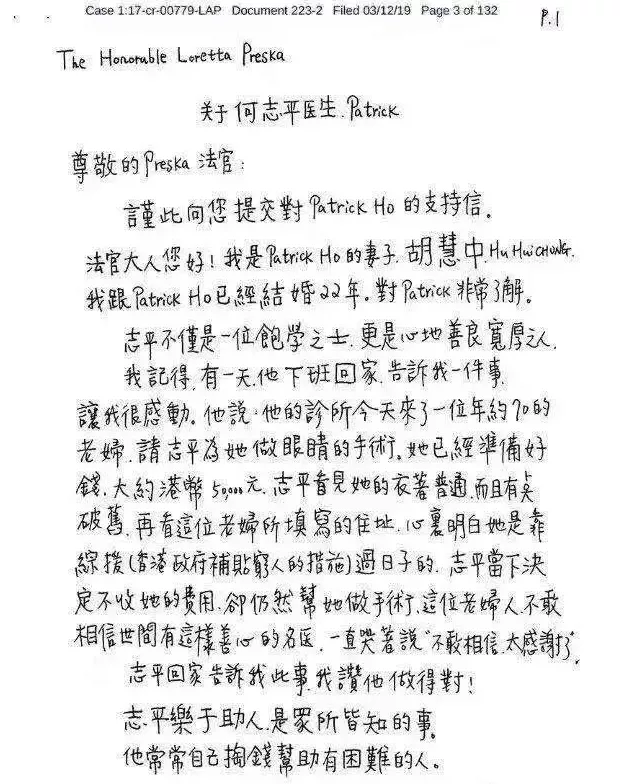 Case 1:17-cr-00779-LAP Document 223-2 Filed 03/12/19 Page 3 of 132
P.1
The Honorable Loretta Preska
关于何志平医生.Patrick
尊敬的Preska 法官:
謹此向您提交對Patrick Ho的支持信。
法官大人您好!我是Patrick Ho的妻子.胡慧中.Hu HuiCHUNG.
我跟Patrick Ho已經結婚22年。對Patrick非常了解。
志平不僅是一位飽學之士.更是心地善良寬厚之人.
我記得.有一天.他下班回家.告訴我一件事.
讓我很感動。他說:他的診所今天來了一位年約70的
老婦.請志平為她做眼睛的手術。她已經準備好
錢.大約港幣50,000元.志平看見她的衣著普通.而且有点
破舊.再看這位老婦所填寫的住址.心裏明白她是靠
綜援(香港政府補貼窮人的措施)過日子的.志平當下決
定不收她的費用.卻仍然幫她做手術.這位老婦人不敢
相信世間有這樣善心的名医.一直哭著說"不敢相信.太感謝了".
志平回家告訴我此事.我讚他做得對!
志平樂于助人.是眾所皆知的事.
他常常自己掏錢幫助有困難的人。